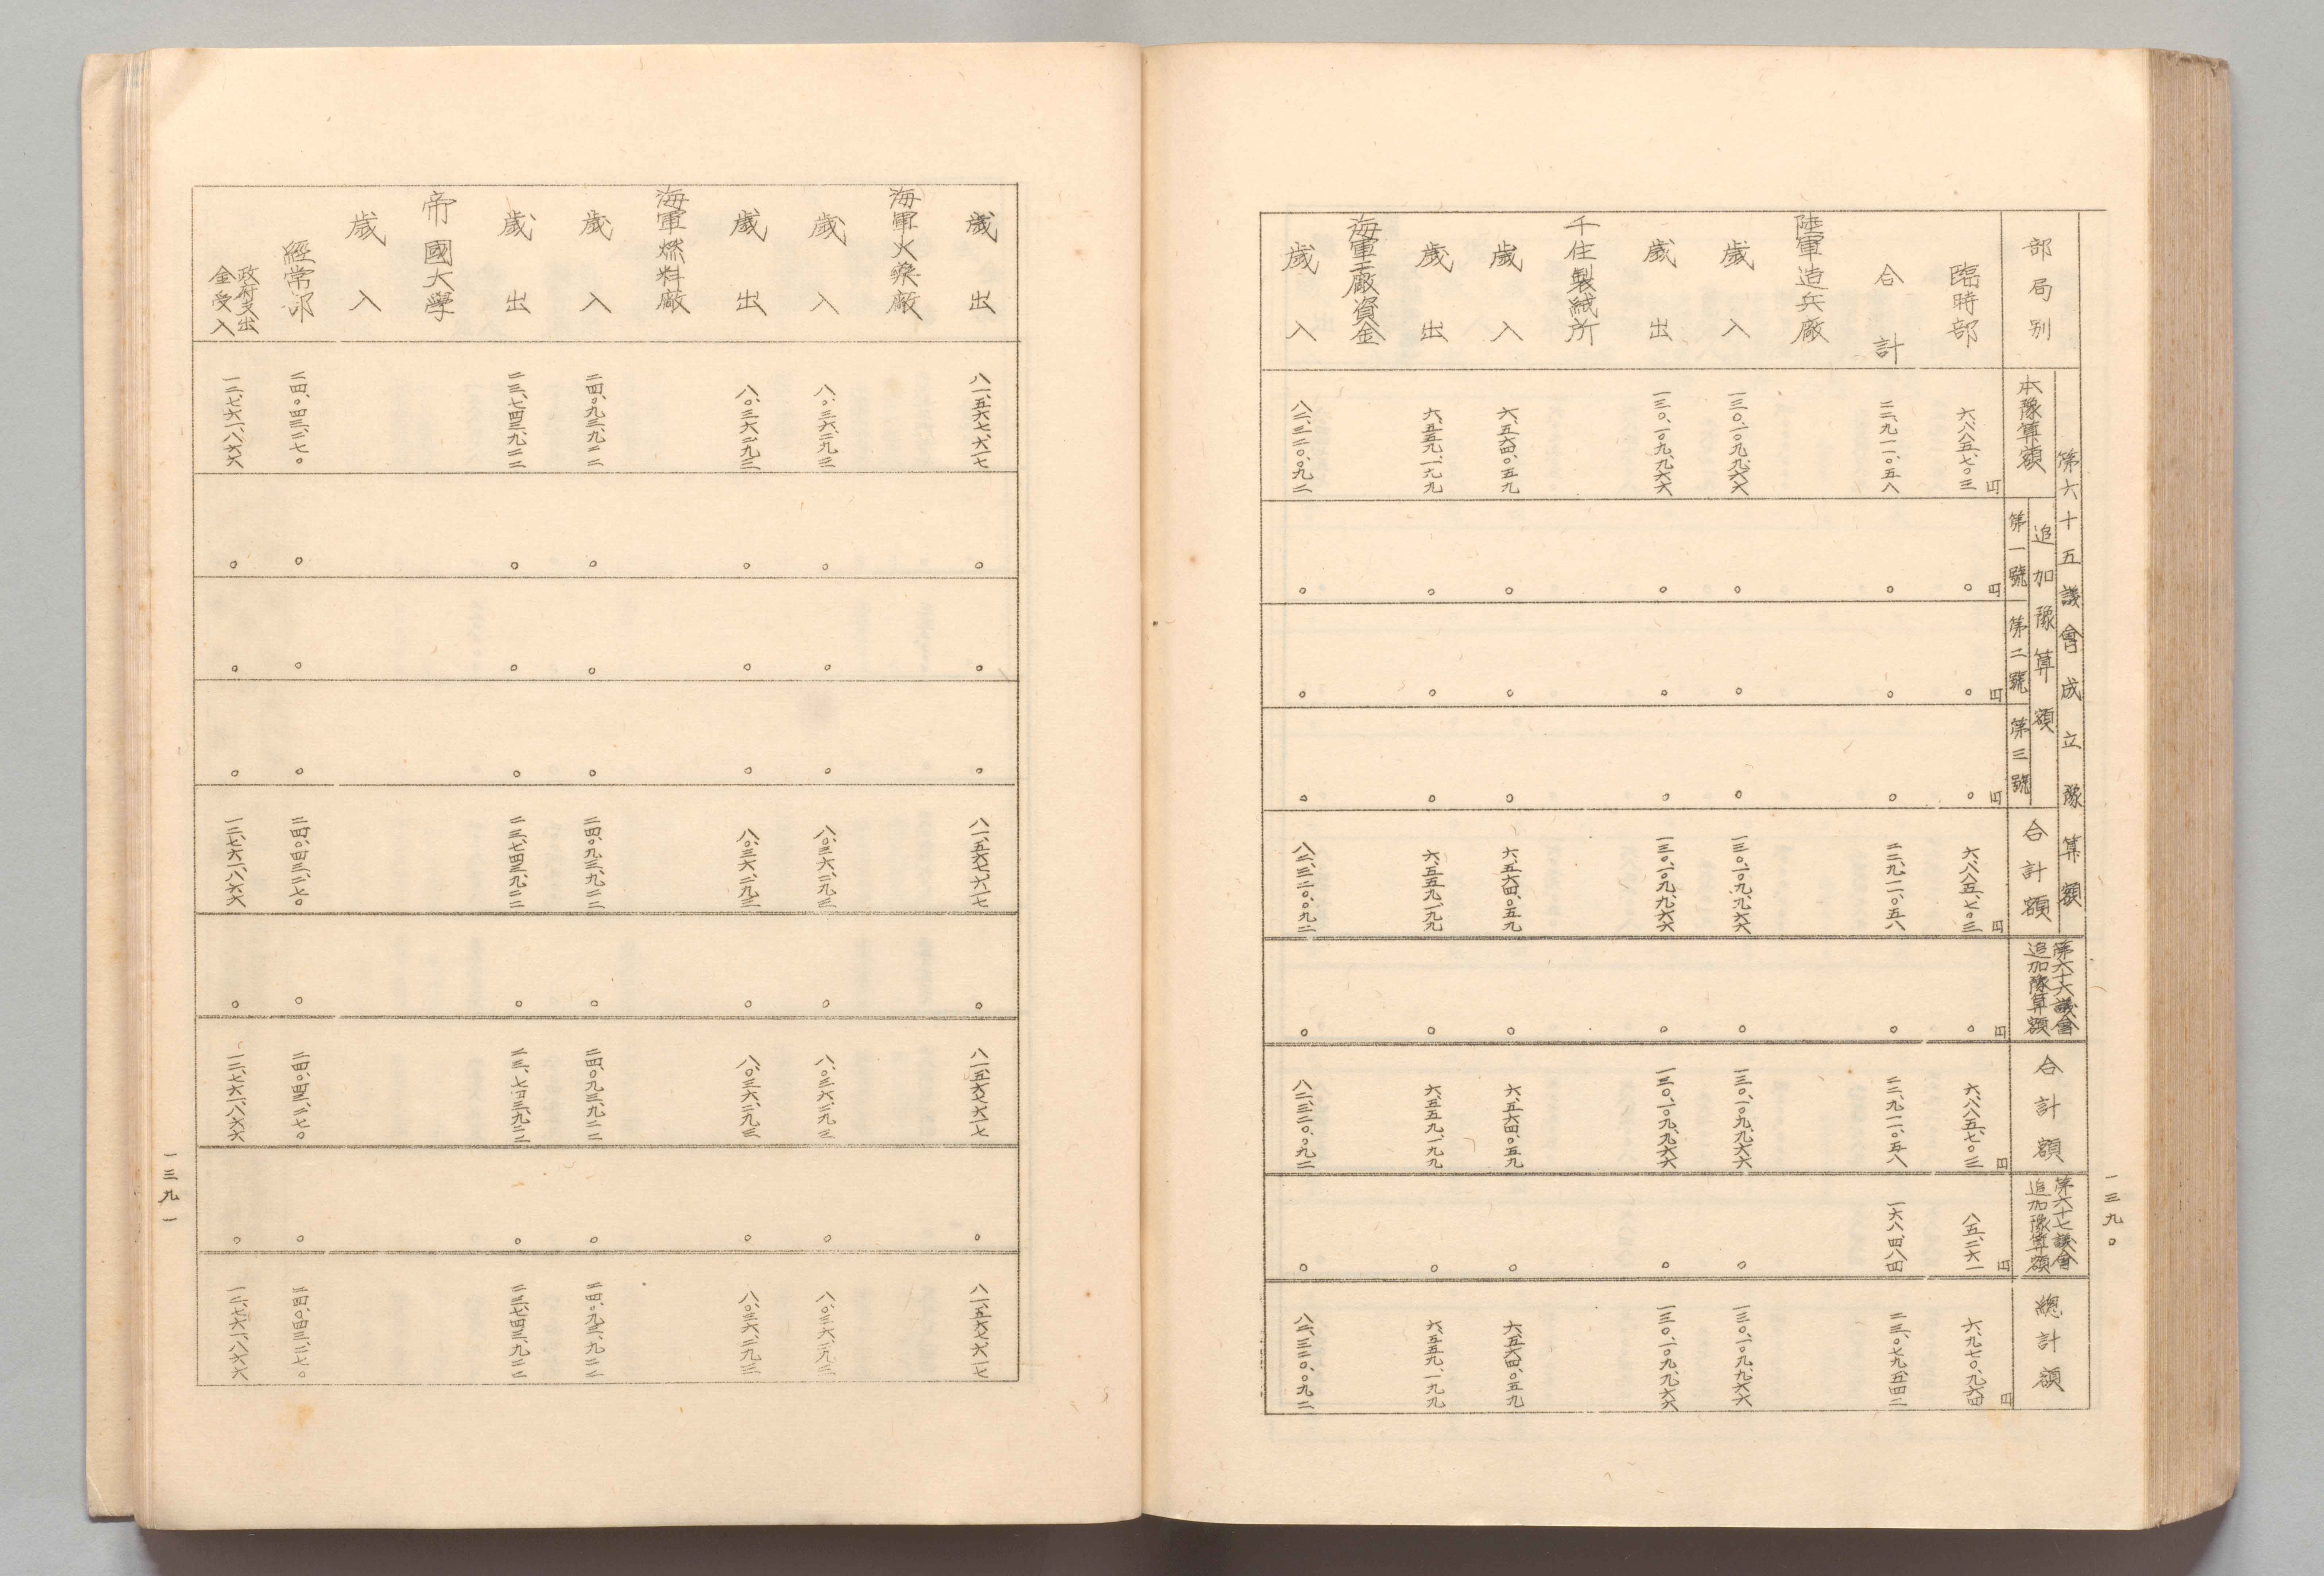 一三九〇
第六十五議會成立豫算額
部局別
本豫算額
追加豫算額
第一號 第二號 第三號
合計額
第六十六議會
追加豫算額
合計額
第六十七議會
追加豫算額
總計額
円 円 円 円 円 円 円 円 円
臨時部 六、八八五、七〇三 〇 〇 〇 六、八八五、七〇三 〇 六、八八五、七〇三 八五、二六一 六、九七〇、九六四
合計 二二、九一一、〇五八 〇 〇 〇 二二、九一一、〇五八 〇 二二、九一一、〇五八 一六八、四八四 二三、〇七九、五四二
陸軍造兵廠
歳入 一三〇、一〇九、九六六 〇 〇 〇 一三〇、一〇九、九六六 〇 一三〇、一〇九、九六六 〇 一三〇、一〇九、九六六
歳出 一三〇、一〇九、九六六 〇 〇 〇 一三〇、一〇九、九六六 〇 一三〇、一〇九、九六六 〇 一三〇、一〇九、九六六
千住製絨所
歳入 六、五六四、〇五九 〇 〇 〇 六、五六四、〇五九 〇 六、五六四、〇五九 〇 六、五六四、〇五九
歳出 六、五五九、一九九 〇 〇 〇 六、五五九、一九九 〇 六、五五九、一九九 〇 六、五五九、一九九
海軍工廠資金
歳入 八二、三二〇、〇九二 〇 〇 〇 八二、三二〇、〇九二 〇 八二、三二〇、〇九二 〇 八二、三二〇、〇九二
歳出 八一、五六七、六一七 〇 〇 〇 八一、五六七、六一七 〇 八一、五六七、六一七 〇 八一、五六七、六一七
海軍火藥廠
歳入 八、〇三六、二九三 〇 〇 〇 八、〇三六、二九三 〇 八、〇三六、二九三 〇 八、〇三六、二九三
歳出 八、〇三六、二九三 〇 〇 〇 八、〇三六、二九三 〇 八、〇三六、二九三 〇 八、〇三六、二九三
海軍燃料廠
歳入 二四、〇九三、九二二 〇 〇 〇 二四、〇九三、九二二 〇 二四、〇九三、九二二 〇 二四、〇九三、九二二
歳出 二三、七四三、九二二 〇 〇 〇 二三、七四三、九二二 〇 二三、七四三、九二二 〇 二三、七四三、九二二
帝國大學
歳入
經常部 二四、〇四三、二七〇 〇 〇 〇 二四、〇四三、二七〇 〇 二四、〇四三、二七〇 〇 二四、〇四三、二七〇
政府支出
金受入 一二、七六一、八六六 〇 〇 〇 一二、七六一、八六六 〇 一二、七六一、八六六 〇 一二、七六一、八六六
一三九一